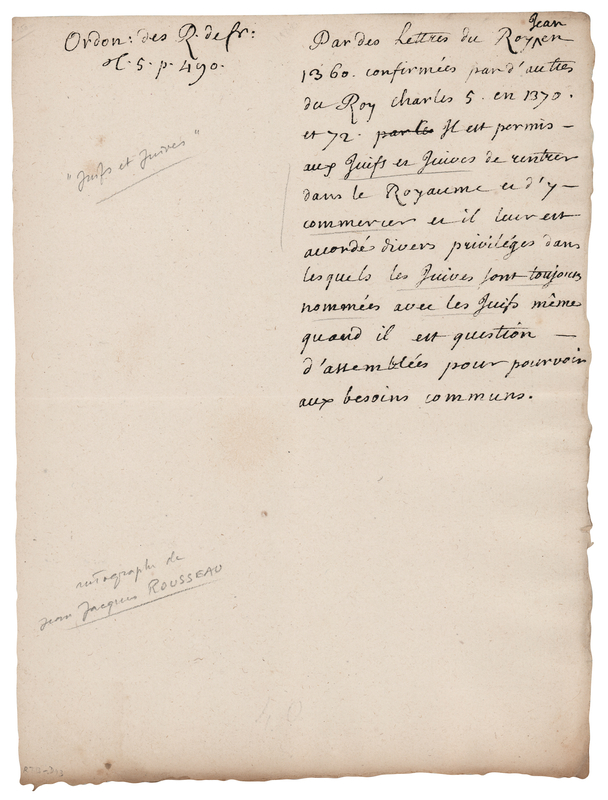 Ordon: des R. de fr:
t. 5. p. 490.
"Juifs et Juives"
autographe de
Jean Jacques ROUSSEAU
Jean
Par des Lettres du Roy en
1360. confirmées par d'autres
du Roy Charles 5. en 1370.
et 72. Il est permis –
aux Juifs et Juives de rentrer
dans le Royaume et d'y –
commercer et il leur est
accordé divers priviléges dans
lesquels les Juives sont toujours
nommées avec les Juifs même
quand il est question –
d'assemblées pour pourvoir
aux besoins communs.